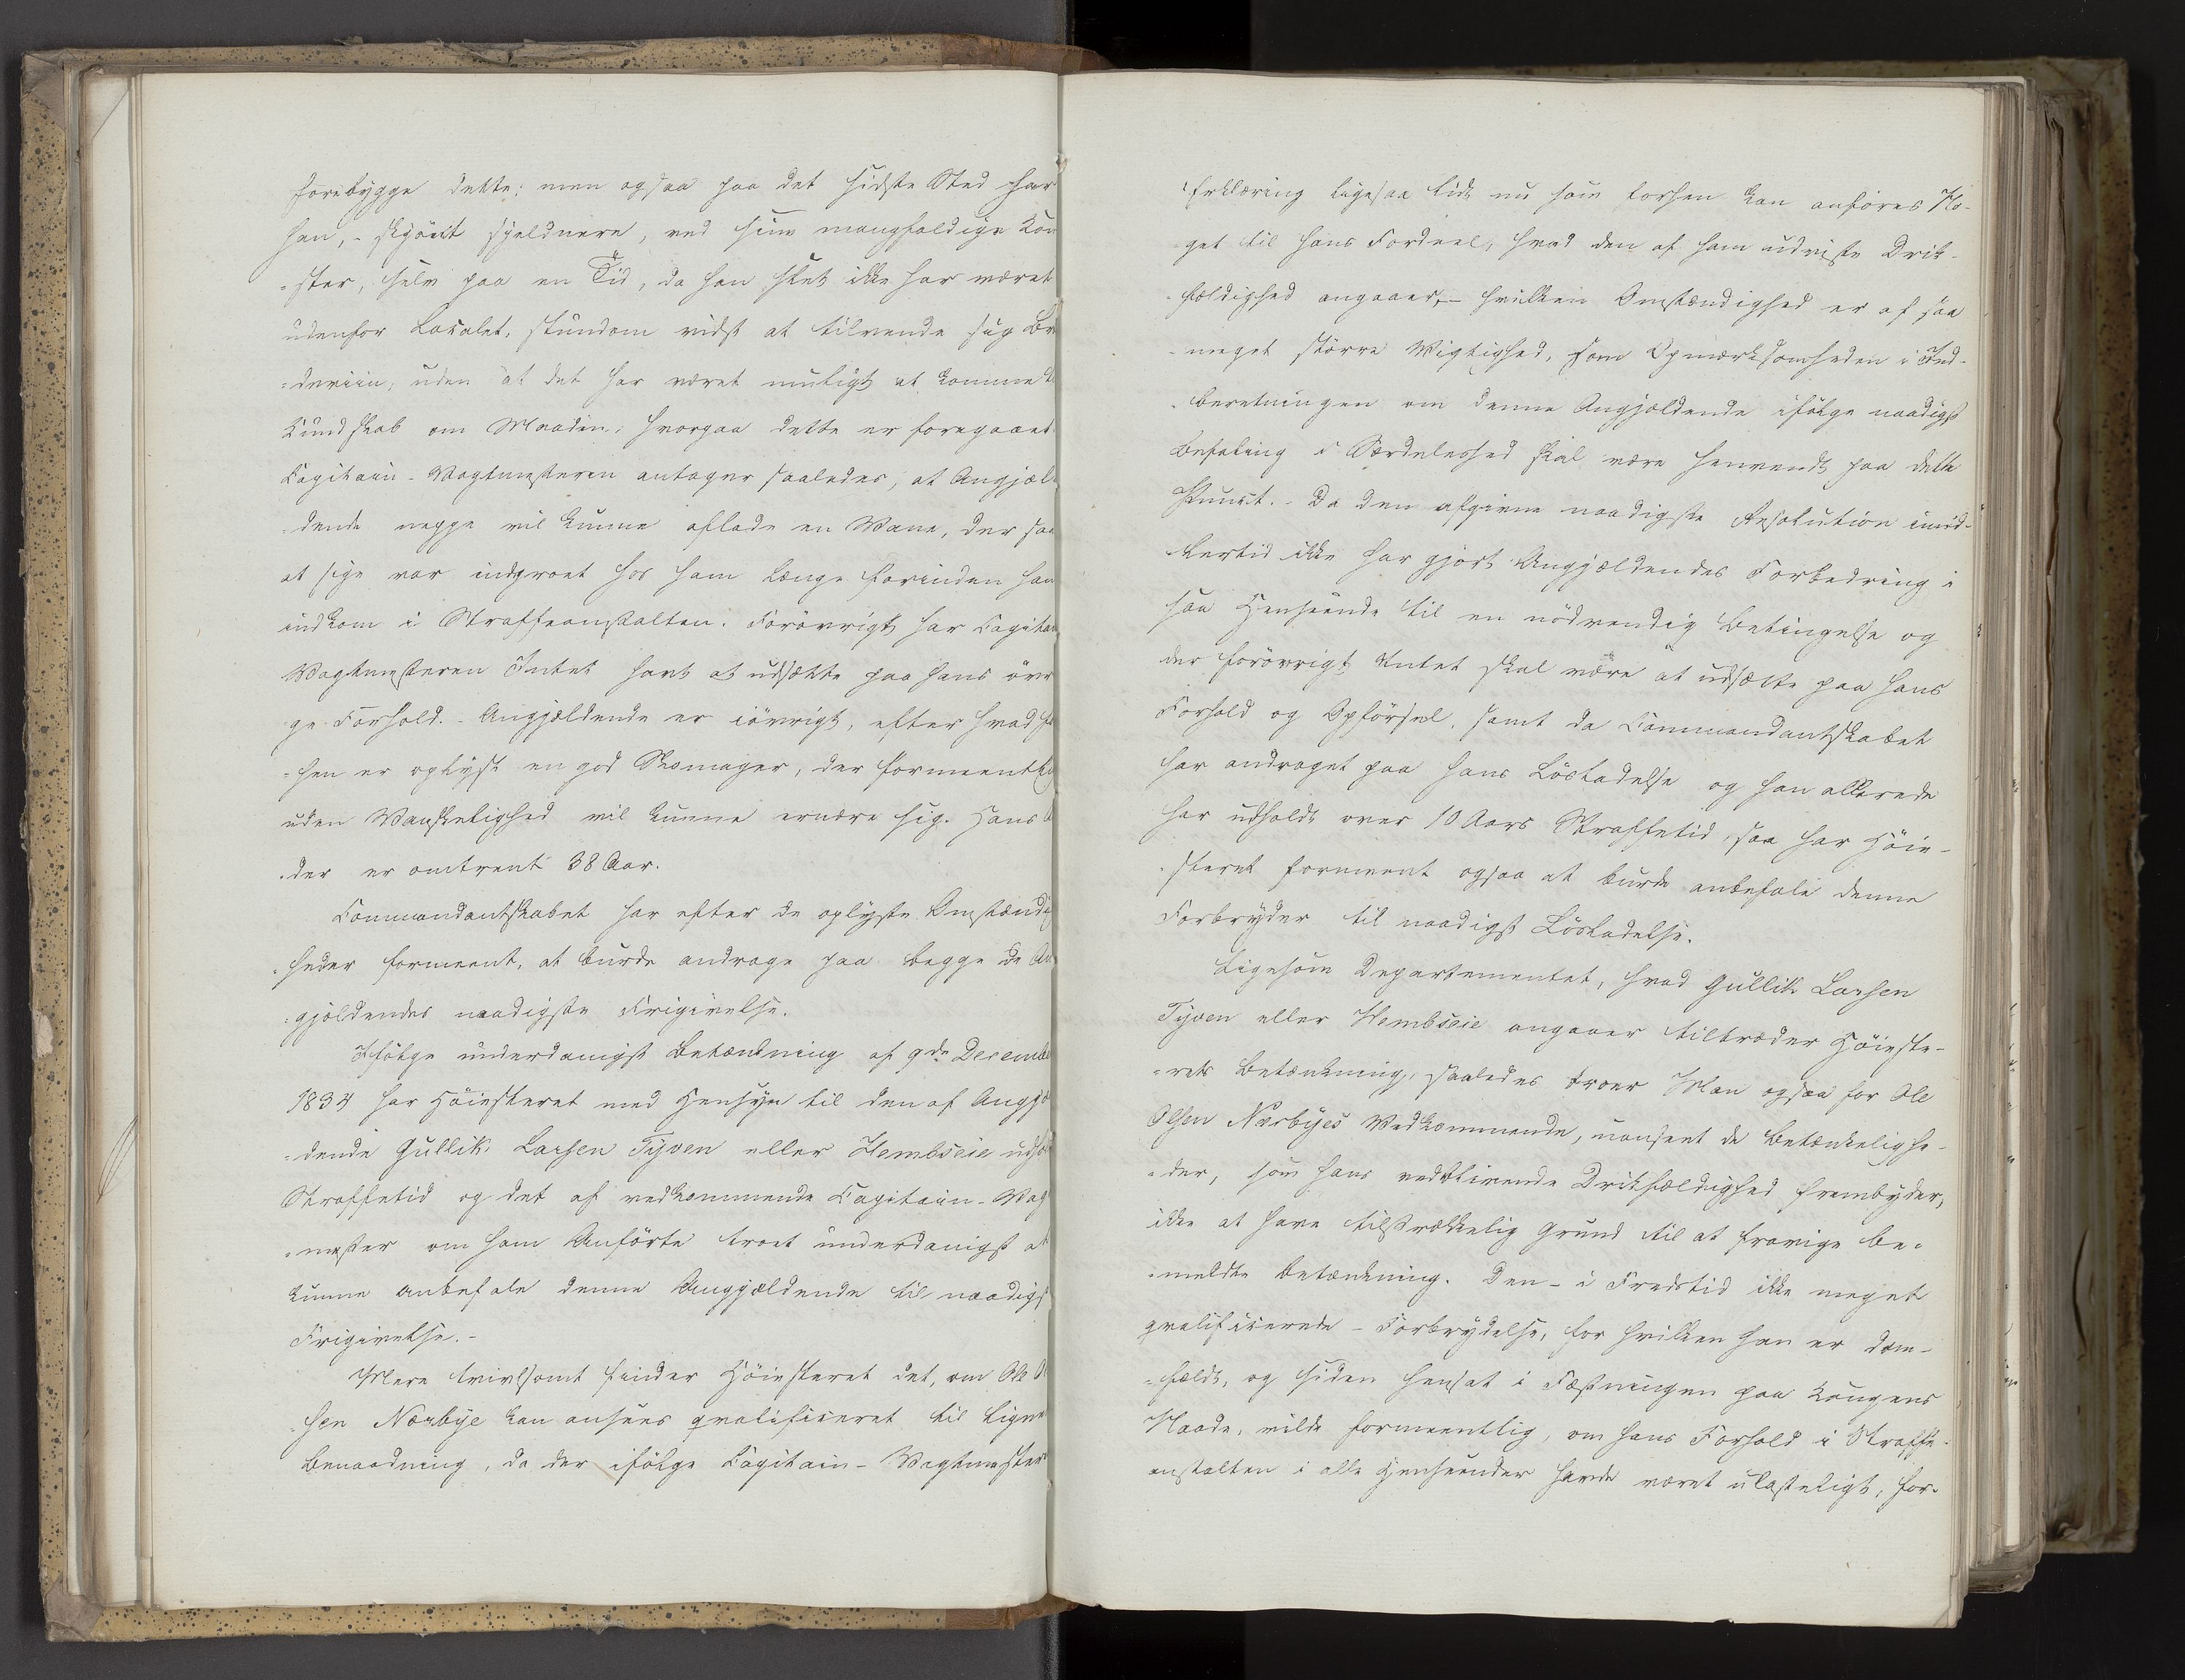 forebygge dette: men ogsaa paa det sidste Sted har
han, - skjönt sjeldnere, ved sine mangfoldige Kon
-ster, selv paa en Tid, da han slet ikke har været
udenfor Localet, stundom vidst at tilvende sig Bræ
-deviin, uden at det har været muligt at komme t
Kundskab om Maaden, hvorpaa dette er foregaaet.
Capitain-Vagtmesteren antager saaledes, at Angjæl
-dende neppe vil kunne aflade en Vane, der saa
at sige var indgroet hos ham længe forinden han
indkom i Straffeanstalten. Forövrigt har Capitai
Vagtmesteren Intet havt at udsætte paa hans övr
ge Forhold. - Angjældende er iövrigt, efter hvad fo
-hen er oplyst en god Skomager, der formeentlig
uden Vanskelighed vil kunne ernære sig. Hans A
-der er omtrent 38 Aar.
Commandantskabet har efter de oplyste Omstændig
-heder formeent, at burde andrage paa begge de An
-gjældendes naadigste Frigivelse.
Ifölge underdanigst Betænkning af 9de Decembe
1834 har Höiesteret med Hensyn til den af Angjæ
-dende Gullik Larsen Tyven eller Hembseie udho
Straffetid og det af vedkommende Capitain-Vag
-mester om ham Anförte troet underdanigst at
kunne anbefale denne Angjældende til naadigst
Frigivelse. -
Mere tvivlsomt finder Höiesteret det, om Ole O
-sen Nærbye kan ansees qvalificeret til lign
Benaadning, da der ifölge Capitain-Vagtmester
Erklæring ligesaa lidt nu som forhen kan anföres No-
get til hans Fordeel, hvad den af ham udviste Drik-
-fældighed angaaer, - hvilken Omstændighed er af saa
-meget större Vigtighed, som Opmærksomheden i Ind-
-beretningen om denne Angjældende ifölge naadigst
Befaling i Særdeleshed skal være henvendt paa dette
Punct. - Da den afgivne naadigste Resolution imid-
-lertid ikke har gjort Angjældendes Forbedring i
saa Henseende til en nödvendig Betingelse og
der forövrigt Intet skal være at udsætte paa hans
Forhold og Opförsel, samt da Commandantskabet
har andraget paa hans Lösladelse og han allerede
har udholdt over 10 Aars Straffetid, saa har Höie-
-steret formeent ogsaa at burde anbefale denne
Forbryder til naadigst Lösladelse.
Ligesom Departementet, hvad Gullik Larsen
Tyven eller Hembseie angaaer tiltræder Höieste-
-rets Betænkning, saaledes troer Man ogsaa for Ole
Olsen Nærbyes Vedkommende, uanseet de Betænkelighe-
-der, som hans vedblivende Drikfældighed frembyder,
ikke at have tilstrækkelig Grund til at fravige be-
-meldte Betænkning. Den - i Fredstid ikke meget
qvalificerede - Forbrydelse, for hvilken han er dom-
-fældt, og siden hensat i Fæstningen paa Kongens
Naade, vilde formeentlig, om hans Forhold i Straffe-
anstalten i alle Henseender havde været ulasteligt, for-